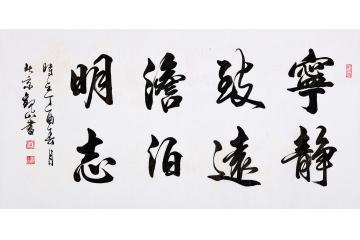 寧静
致遠
澹泊
明志
時在丁酉春月
北京山書